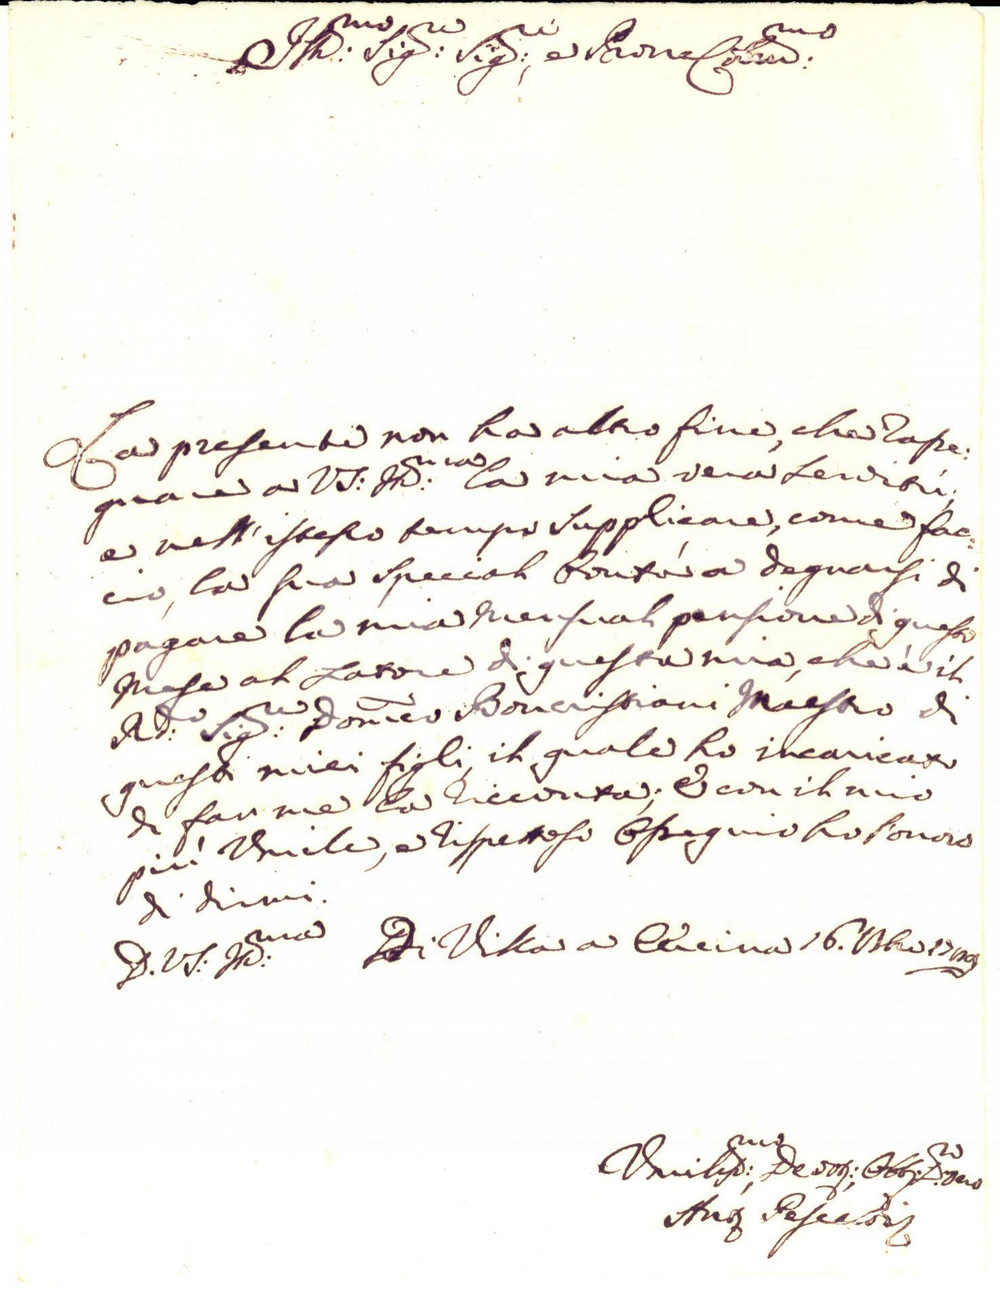 Ill:mo Sig:re Sig:re, e Prone Col:mo
La presente non ha altro fine, che rasse:
gnare a VS: Ill:ma la mia vera servitù,
e nell'istesso tempo supplicare, come fac:
cio, la sua special bontà a degnarsi di
pagare la mia mensual pensione di questo
Mese al Latore di questa mia, che è il
Rd:o Sig:re Dom:co Boncristiani Maestro di
questi miei figli, il quale ho incaricato
di farme la ricevuta; E con il mio
più Umile, e rispettoso Ossequio ho l'onore
di dirmi.
D. VS: Ill:ma Di Villa a Cecina 16. Xbre
Umiliss:mo, Devot:, Obb: